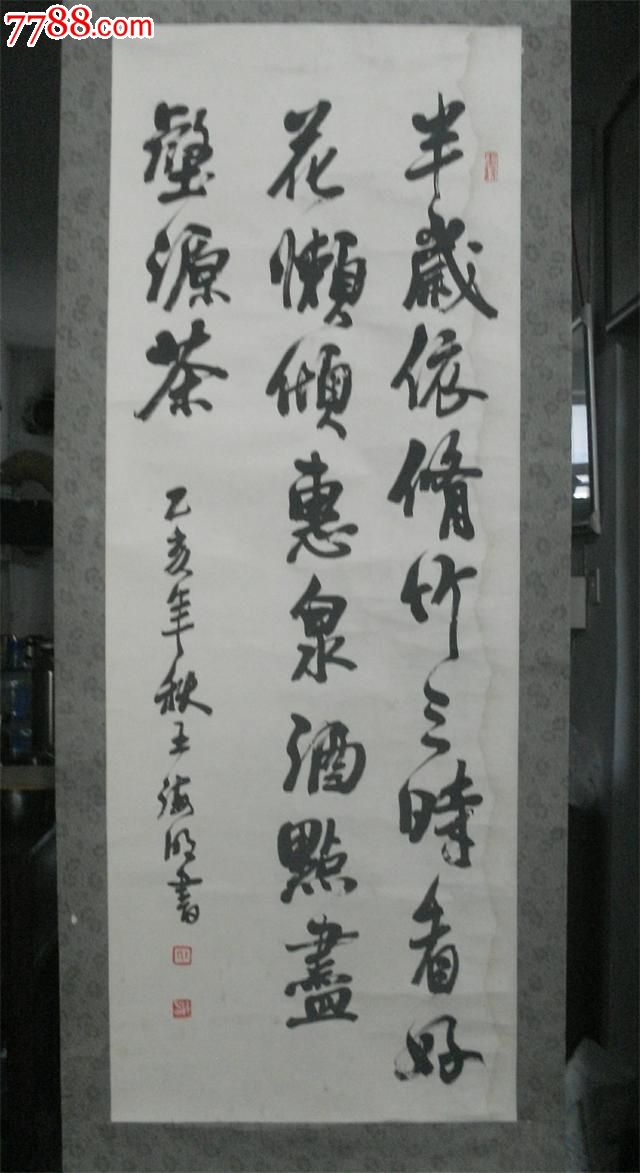 7788.com
半歲依脩竹三時看好
花懶傾惠泉酒點盡
壑源茶
乙亥年秋王海明書